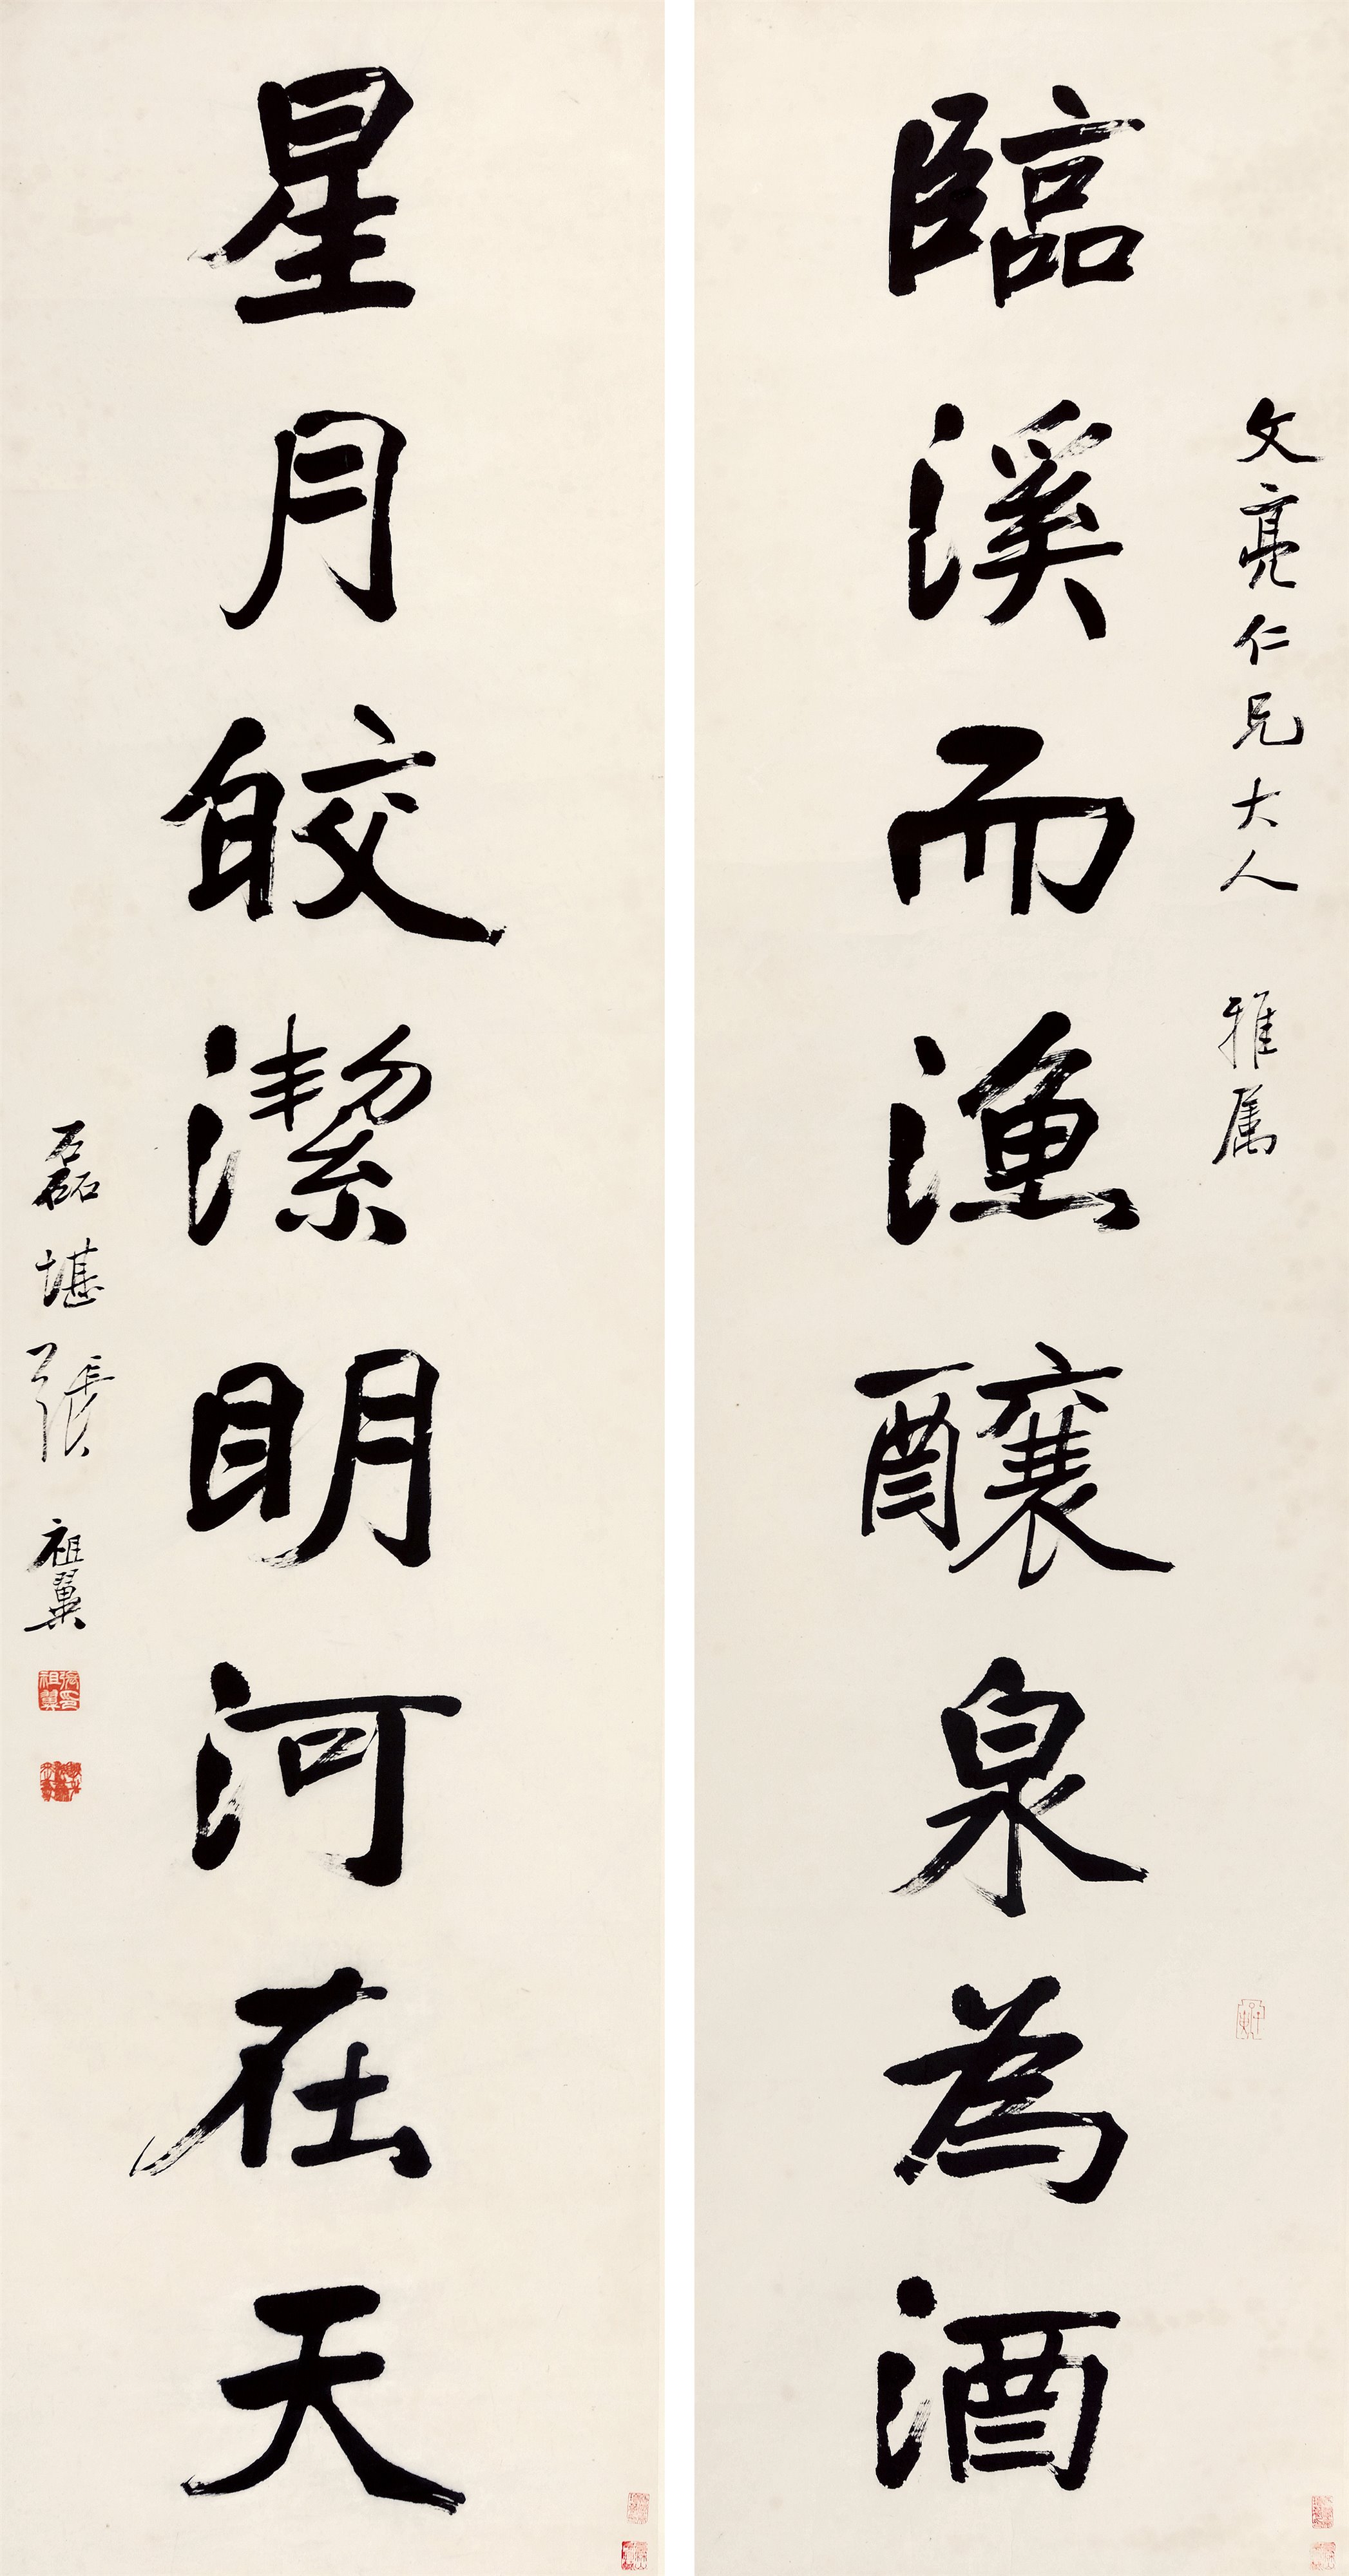 文亮仁兄大人雅属
臨溪而漁釀泉為酒
星月皎潔明河在天
磊堪張祖翼
張祖翼印